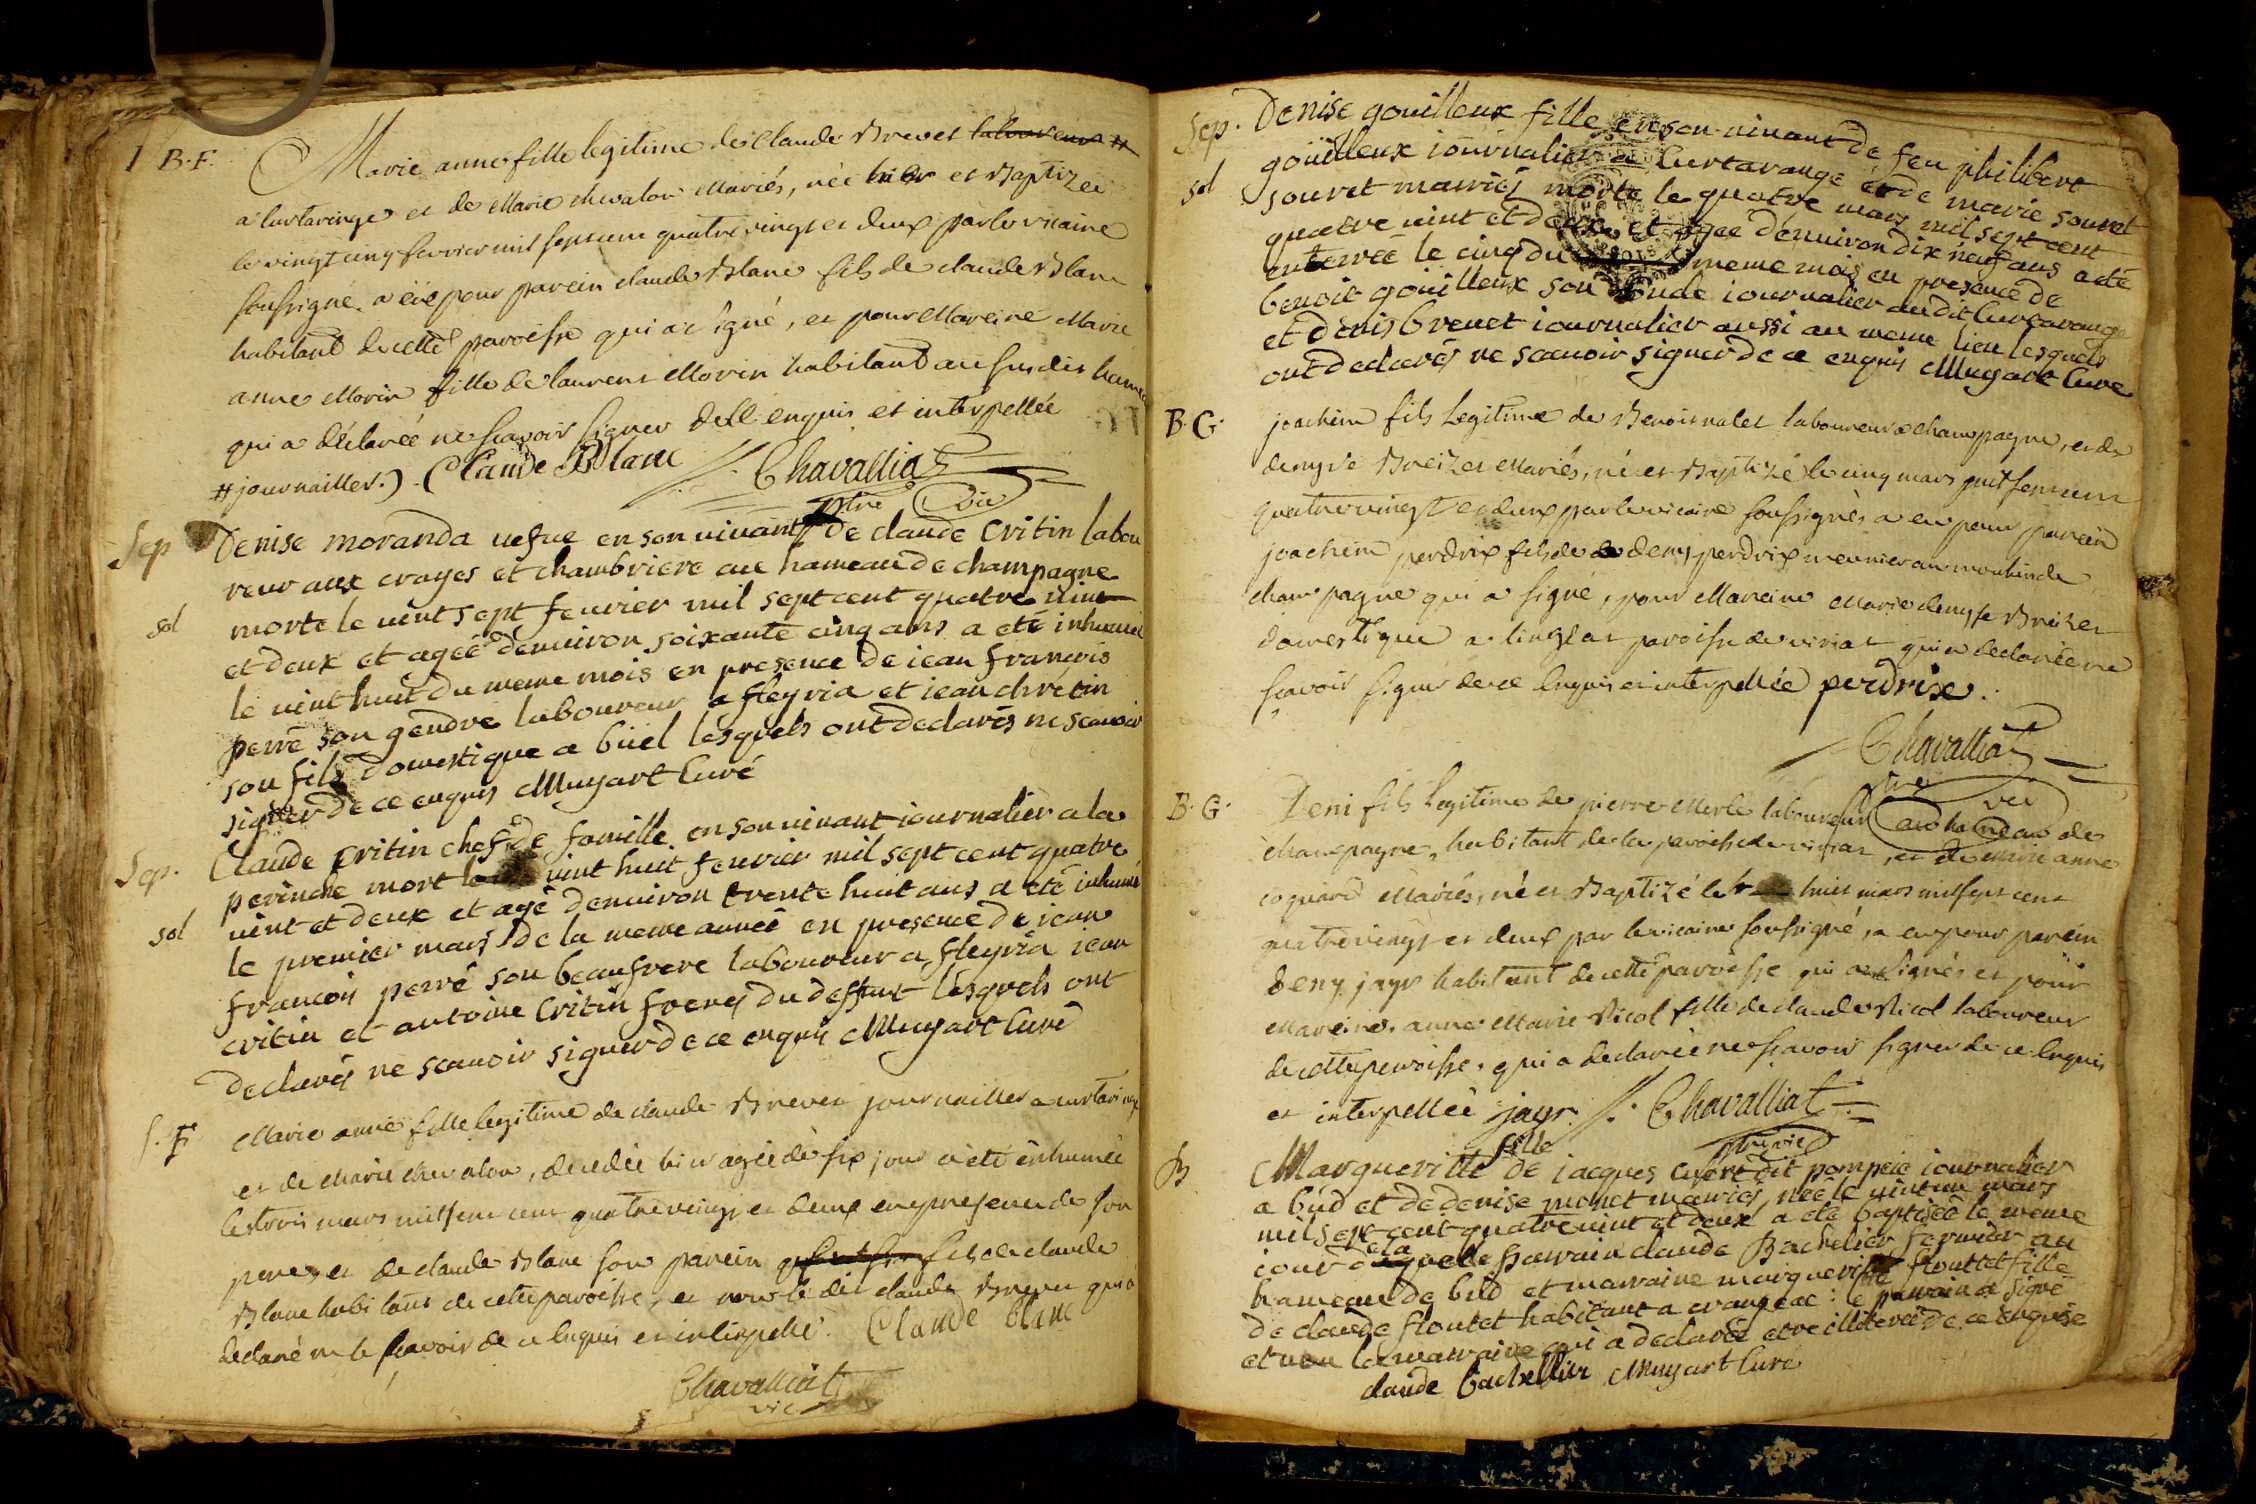 1 B.F. Marie anne fille legitime de Claude Brevet laboureur #
a Curtaringe et de Marie chevalon Mariés, née hier et Baptizée
le vingt cinq fevrier mil sept cent quatre vingt et deux par le vicaire
soussigné. a été pour parein claude Blanc fils de claude Blanc
habitant de cette paroisse qui a signé, et pour Mareine Marie
anne Morin fille de laurent Morin habitant au susdit hameau
qui a déclarée ne scavoir signer de ce enquis et interpellée
# journailler.) Claude Blanc Chavalliat
ptre vic
Sep Denise moranda vefve en son vivant de claude Critin labou
reur aux crayes et chambriere au hameau de champagne
sol morte le vint sept fevrier mil sept cent quatre vint
et deux et agée denviron soixante cinq ans a eté inhumée
le vint huit du meme mois en presence de iean françois
perré son gendre laboureur a fleyria et iean chretin
son fils domestique a buel lesquels ont declarés ne scavoir
signer de ce enquis Muyart Curé
Sep. Claude Critin chef de famille en son vivant iournalier a la
perinche mort le vint huit fevrier mil sept cent quatre
vint et deux et agé denviron trente huit ans a eté inhumé
sol le premier mars de la meme année en presence de iean
françois perré son beaufrere laboureur a fleyria iean
critin et antoine Critin freres du deffunt lesquels ont
declarés ne scavoir signer de ce enquis Muyart Curé
S. F Marie anne fille legitime de claude Brevet journailler a curtaringe
et de Marie chevalon, decedée hier agée de six jour a été inhumée
le trois mars mil sept cent quatre vingt et deux en presence de son
pere, et de claude Blanc son parein fils de claude
Blanc habitant de cette paroisse, et non le dit claude Brevet qui a
declaré ne le scavoir de ce enquis et interpellé. Claude blanc
Chavalliat
vic
Sep. Denise gouilleux fille en son vivant de feu philibert
gouilleux iournalier a Curtarange et de marie souvet
sol souvet mariés morte le quatre mars mil sept cent
quatre vint et deux et agée denviron dix neuf ans a eté
enterrée le cinq du meme mois en presence de
benoit gouilleux son oncle iournalier au dit Curtarange
et denis brevet iournalier aussi au meme lieu lesquels
ont declarés ne scavoir signer de ce enquis Muyart Curé
B. G. joachim fils Legitime de Benoit nalet laboureur a champagne, et de
denyse Breizet Mariés, né et Baptizé le cinq mars mil sept cent
quatre vingt et deux par le vicaire soussignés a eu pour parein
joachim perdrix fils de deny perdrix meunier au moulin de
champagne qui a signé, pour Mareine Marie denyse Breizet
domestique a paroisse de viriat qui a declarée ne
scavoir signer de ce enquis et interpellée perdrix.
Chavalliat
ptre vic
B. G. Deni fils Legitime de pierre Merle laboureur au hameau de
champagne, habitant de la paroisse de viriat, et de Marie anne
coquard Mariés, né et Baptizé le huit mars mil sept cent
quatre vingt et deux par le vicaire soussigné, a eu pour parein
Deny jayr habitant de cette paroisse qui a signés et pour
Mareine anne Marie Nicol fille de claude Nicol laboureur
de cette paroisse. qui a declarée ne scavoir signer de ce enquis
et interpellée jayr Chavalliat
ptre vic
B Margueritte fille de iacques dit pompée iournalier
a bud et de denise monet mariés, née le vint un mars
mil sept cent quatre vint et deux a eté baptisée le meme
iour a parrain claude Bachelier fermier au
hameau de bud et marraine margueritte floutet fille
de claude floutet habitant a crangeac : le parrain a signé
et non la marraine qui a declarée etre illiterée de ce enquise
claude bachellier Muyart Curé